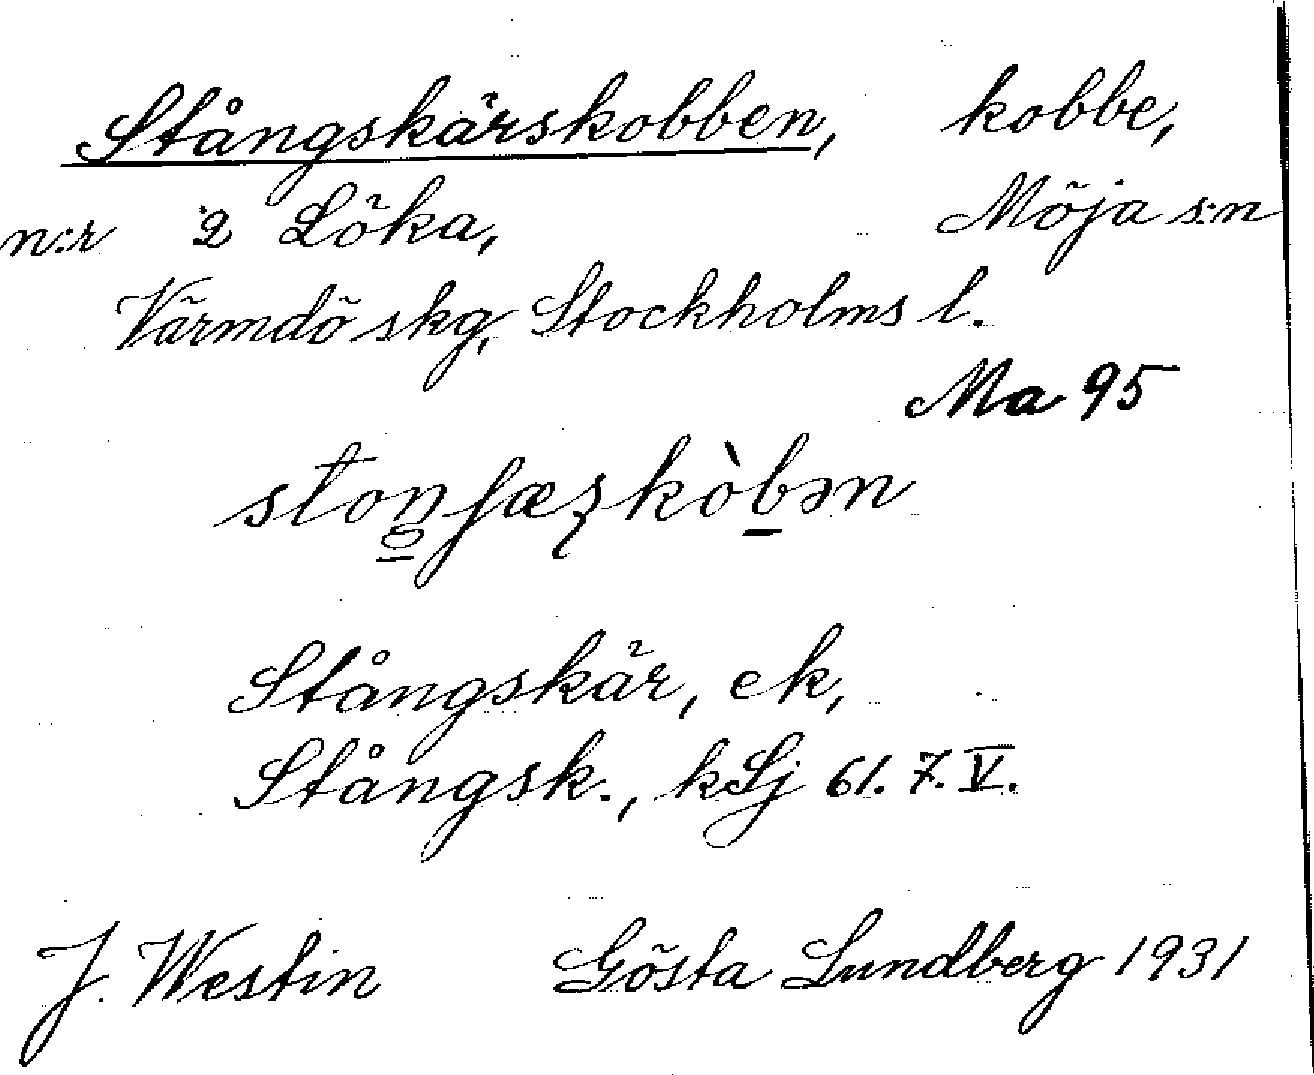 Stångskärskobben, kobbe,
n:r 2 Löka, Möja s:n
Värmdö skg, Stockholms l.
Ma 95
Stångskär, ek,
Stångsk., kSj 61. 7. V.
J. Westin Gösta Lundberg 1931